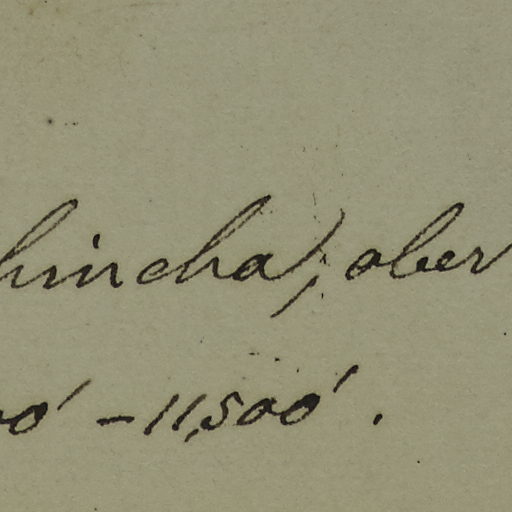 hincha); ober
00' - 11,500'.